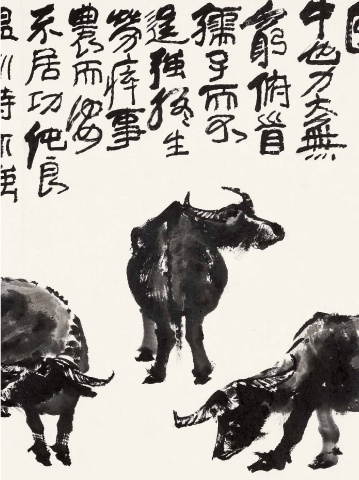 牛也力大無
窮俯首
孺子而不
逞強終生
勞瘁事
農而安
不居功純良
溫馴時亦強